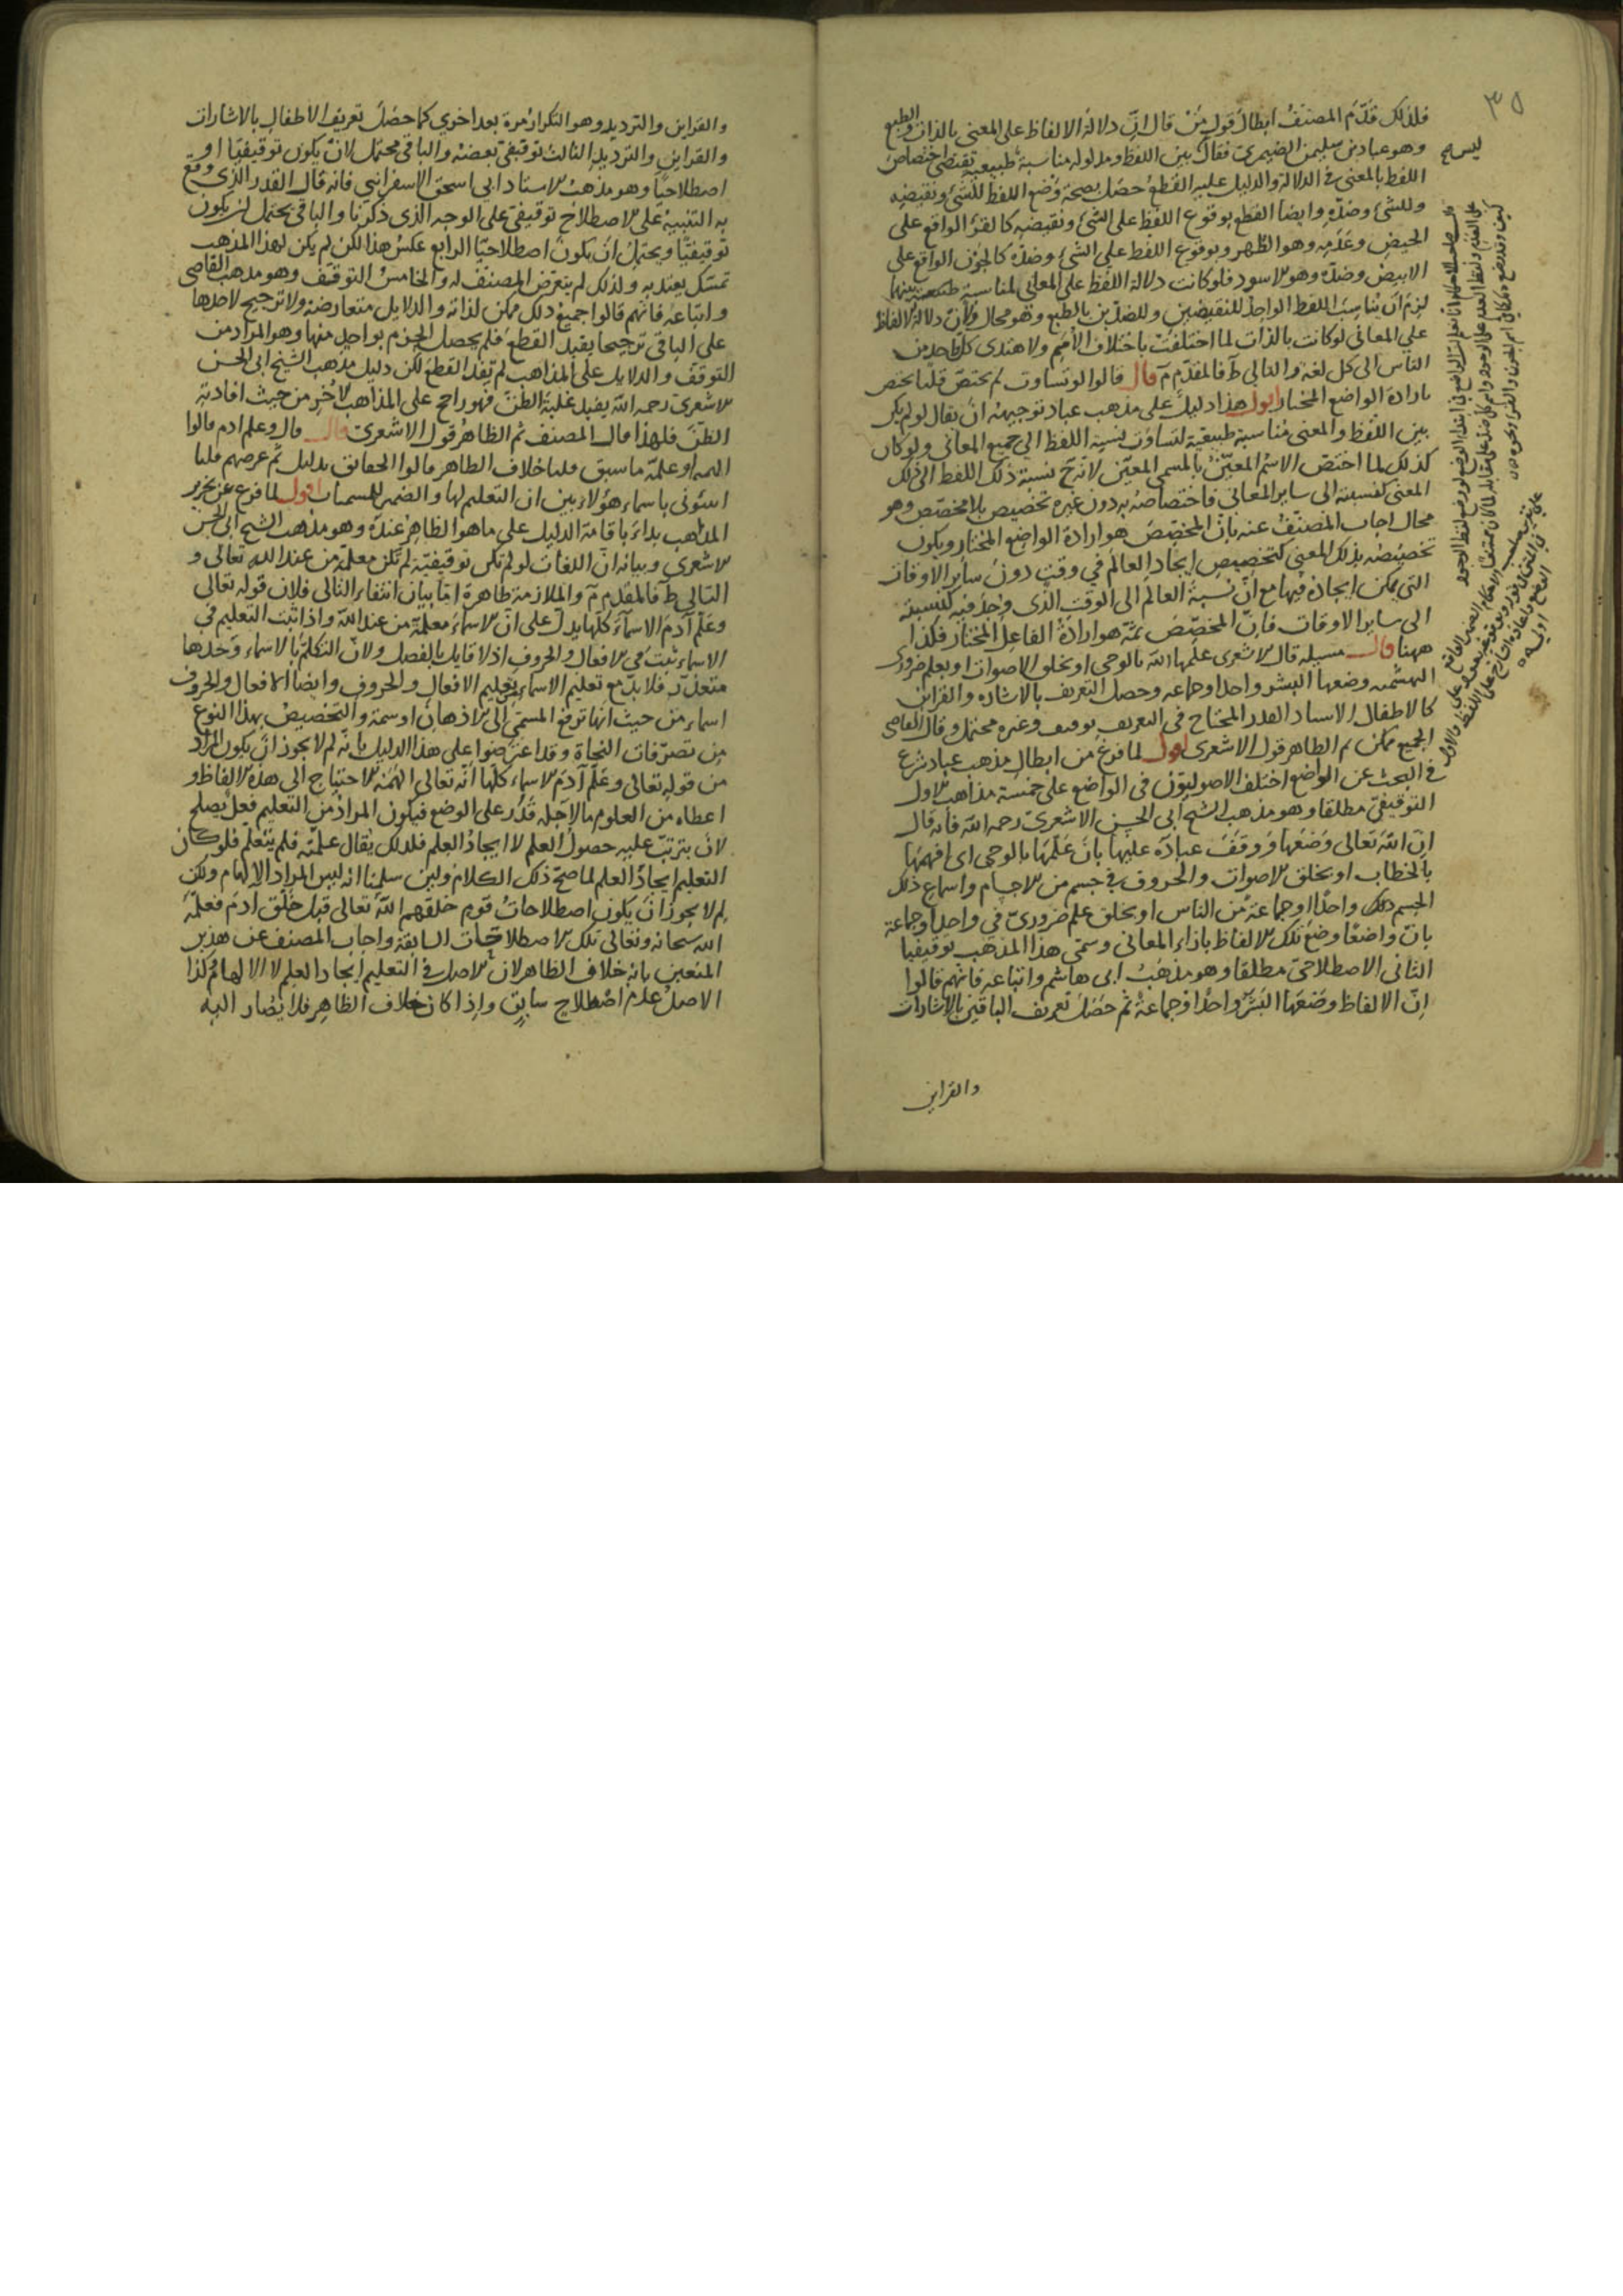 ٣٥
فلذلك قدّم المصنف ابطال قول من قال انّ دلالة الالفاظ على المعنى بالذات والطبع
وهو عباد بن سليمن الضيمري فقال بين اللفظ ومدلوله مناسبة طبيعية تقتضي اختصاص
اللفظ بالمعنى في الدلالة والدليل عليه القطع حصل بصحة وضع اللفظ للشئ ونقيضه
وللشئ وضدّه وايضا القطع بوقوع اللفظ على الشئ ونقيضه كالقرؤ الواقع على
الحيض وعدمه وهو الطهر وبوقوع اللفظ على الشئ وضدّه كالجون الواقع على
الابيض وضدّه وهو الاسود فلو كانت دلالة اللفظ على المعاني لمناسبة طبيعية بينهما
لزم ان يناسب اللفظ الواحد للنقيضين وللضدّين بالطبع وهو محال ولان دلالة الالفاظ
على المعاني لو كانت بالذات لما اختلفت باختلاف الأمم ولاهتدى كل واحد من
الناس الى كل لغة والتالي ط فالمقدّم مَ قال قالوا لو تساوت لم يختص قلنا يختص
بارادة الواضع المختار اقول هذا دليل على مذهب عباد توجيهه ان يقال لو لم يكن
بين اللفظ والمعنى مناسبة طبيعية لتساوت نسبة اللفظ الى جميع المعاني ولو كان
كذلك لما اختص الاسم المعيّن بالمسمى المعيّن لانه ح نسبة ذلك اللفظ الى ذلك
المعنى كنسبته الى ساير المعاني فاختصاصه به دون غيره تخصيص بلا مخصّص وهو
محال اجاب المصنّف عنه بانّ المخصّص هو ارادة الواضع المختار ويكون
تخصيصه بذلك المعنى كتخصيص ايجاد العالم في وقت دون ساير الاوقات
التي يمكن ايجاده فيها مع انّ نسبة العالم الى الوقت الذي وجد فيه كنسبته
الى ساير الاوقات فانّ المخصّص ثمّة هو ارادة الفاعل المختار فكذا
ههنا قال مسيلة قال الاشعرى علّمها الله بالوحي او بخلق الاصوات او بعلم ضروري
البهشمية وضعها البشر واحد او جماعة وحصل التعريف بالاشارة والقراين
كالاطفال الاستاد القدر المحتاج في التعريف توقيف وغيره محتمل وقال القاضي
الجميع ممكن ثم الظاهر قول الاشعرى اقول لما فرغ من ابطال مذهب عباد شرع
في البحث عن الواضع اختلف الاصوليّون في الواضع على خمسة مذاهب الاول
التوقيفي مطلقا وهو مذهب الشيخ ابي الحسن الاشعريّ رحمه الله فانه قال
انّ الله تعالى وضعها ووقّف عباده عليها بان علّمها بالوحي اى افهمها
بالخطاب او بخلق الاصوات والحروف في جسم من الاجسام واسماع ذلك
الجسم ذلك واحدًا او جماعة من الناس او بخلق علم ضروريّ في واحد او جماعة
بانّ واضعًا وضع تلك الالفاظ بازاء المعاني وسمّي هذا المذهب توقيفيا
الثاني الاصطلاحيّ مطلقا وهو مذهب ابي هاشم واتباعه فانهم قالوا
إنّ الالفاظ وضعها البشر واحدًا او جماعة ثم حصل تعريف الباقين بالاشارات
والقراين
والقراين والترديد وهو التكرار مرة بعد اخرى كما حصل تعريف الاطفال بالاشارات
والقراين والترديد الثالث توقيفي بعضه والباقي محتمل لان يكون توقيفيا او
اصطلاحيا وهو مذهب الاستاد ابي اسحق الاسفرايني فانه قال القدر الذي وقع
به التنبيه على الاصطلاح توقيفي على الوجه الذي ذكرنا والباقي يحتمل ان يكون
توقيفيًا ويحتمل ان يكون اصطلاحيّا الرابع عكس هذا لكن لم يكن لهذا المذهب
تمسّك يعتدّ به ولذلك لم يتعرّض المصنف له والخامس التوقف وهو مذهب القاضي
واتباعه فانّهم قالوا جميع ذلك ممكن لذاته والدلايل متعارضة ولا ترجيح لاحدها
على الباقي ترجيحا يفيد القطع فلم يحصل الجزم بواحد منها وهو المراد من
التوقف والدلايل على المذاهب لم تفد القطع لكن دليل مذهب الشيخ ابي الحسن
الاشعري رحمه الله يفيد غلبة الظنّ فهو راجح على المذاهب الاُخر من حيث افادته
الظنّ فلهذا قال المصنف ثم الظاهر قول الاشعري قال قال وعلم ادم قالوا
الهمه او علّمه ما سبق قلنا خلاف الظاهر قالوا الحقائق بدليل ثم عرضهم قلنا
انبئوني باسماء هؤلاء يبين ان التعليم لها والضمير للمسميات اقول لما فرغ عن تحرير
المذاهب بداء باقامة الدليل على ما هو الظاهر عنده وهو مذهب الشيخ ابي الحسن
الاشعري وبيانه انّ اللغات لو لم تكن توقيفيّة لم تكن معلّمة من عند الله تعالى و
التالي ط فالمقدم مَ والملازمة ظاهرة امّا بيان انتفاء التالي فلان قوله تعالى
وعلّم آدم الاسماء كلّها يدلّ على انّ الاسماء معلّمة من عند الله واذا ثبت التعليم في
الاسماء ثبت في الافعال والحروف اذ لا قايل بالفصل ولانّ التكلم بالاسماء وحدها
متعذّر فلا بدّ مع تعليم الاسماء من تعليم الافعال والحروف وايضا الافعال والحروف
اسماء من حيث انها ترفع المسمّى الى الاذهان او سمة والتخصيص بهذا النوع
من تصرّفات النحاة وقد اعترضوا على هذا الدليل بانّه لم لا يجوز ان يكون المراد
من قوله تعالى وعلّم آدم الاسماء كلّها انّه تعالى الهمه الاحتياج الى هذه الالفاظ و
اعطاه من العلوم ما لاجله قدر على الوضع فيكون المراد من التعليم فعل يصلح
لان يترتب عليه حصول العلم لا ايجاد العلم فلذلك يقال علّمته فلم يتعلم فلو كان
التعليم ايجاد العلم لما صحّ ذلك الكلام ولين سلّمنا انه ليس المراد الالهام ولكن
لم لا يجوز ان يكون اصطلاحات قوم خلقهم الله تعالى قبل خلق ادم فعلّمه
الله سبحانه وتعالى تلك الاصطلاحات السابقة واجاب المصنف عن هذين
المنعين بانه خلاف الظاهر لان الاصل في التعليم ايجاد العلم لا الالهام وكذا
الاصل عدم اصطلاح سابق واذا كان خلاف الظاهر فلا يضار اليه